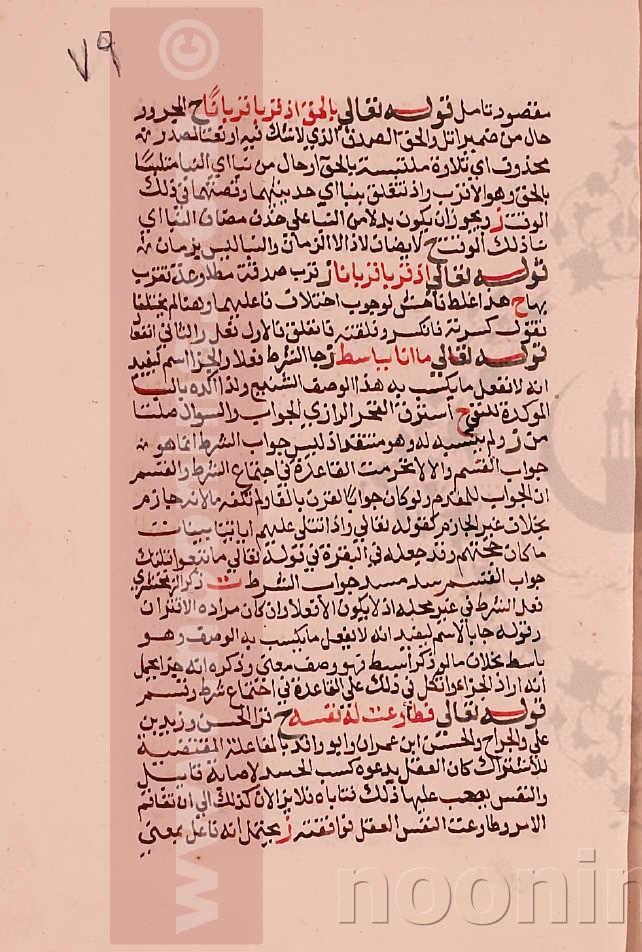 ٧٩
مقصود تامل قوله تعالي بالحق اذ قربا قربانا ح المجرور
حال من ضمير اتل والحق الصدق الذي لاشك فيه او نعتا لمصدر
محذوف اي تلاوة ملتبسة بالحق او حال من نبا اي النبا متلبسا
بالحق وهو الاقرب واذ تتعلق بنبا اي حديثهما وقصتهما في ذلك
الوقت ز ويجوز ان يكون بدلا من النبا علي حذف مضاف النبا اي
نبا ذلك الوقت ح لا يضاف لاذ الا الزمان والنبا ليس بزمان
قوله تعالي اذ قربا قربانا ز قرب صدقة مطاوعة تقرب
بها ح هذا غلط فاحش لوجوب اختلاف فاعلهما وهنا لم يختلفا
تقول كسرته فانكسر وفلقته فانفلق فالاول فعل والثاني انفعل
قوله تعالي ما انا بباسط ز جا الشرط فعلا والجزا اسم ليفيد
انه لا يفعل ما يكتسب به هذا الوصف الشنيع ولذا اكده بالبا
الموكدة للنفي ح استرق الفخر الرازي الجواب والسوال
من ز ولم ينسبه له وهو منتقد اذ ليس جواب الشرط انما هو
جواب القسم والا لانخرمت القاعدة في اجتماع الشرط والقسم
ان الجواب للمقدم ولو كان جوابا لقرن بالفا ولم تكفه ما لانه جازم
بخلاف غير الجازم كقوله تعالي واذا تتلي عليهم اياتنا بينات
ما كان حجتهم وقد جعله في البقرة في قوله تعالي ما تبعوا قبلتك
جواب القسم سد مسد جواب الشرط ت ذكر الزمخشري
فعل الشرط في غير محله اذ لا يكون الا فعلا وان كان مراده الاقتران
وقوله جا بالاسم ليفيد انه لا يفعل ما يكتسب به الوصف وهو
باسط بخلاف ما لو ذكر ابسط فهو وصف معني وذكره انه جزا يحمل
انه اراد الجزاء واتكل في ذلك علي القاعدة في اجتماع شرط وقسم
قوله تعالي فطاوعت له نفسه ح قرا الحسن وزيد بن
علي والجراح والحسن ابن عمران وابو واقد بالمفاعلة المقتضية
للاشتراك كان العقل يدعوه كسب الحسد لاصابة قابيل
والنفس يصعب عليها ذلك فتاباه فلا يزالان كذلك الي ان تفاقم
الامر وطاوعت النفس العقل فوافقته ز يحتمل انه فاعل بمعني
noonin
www
©